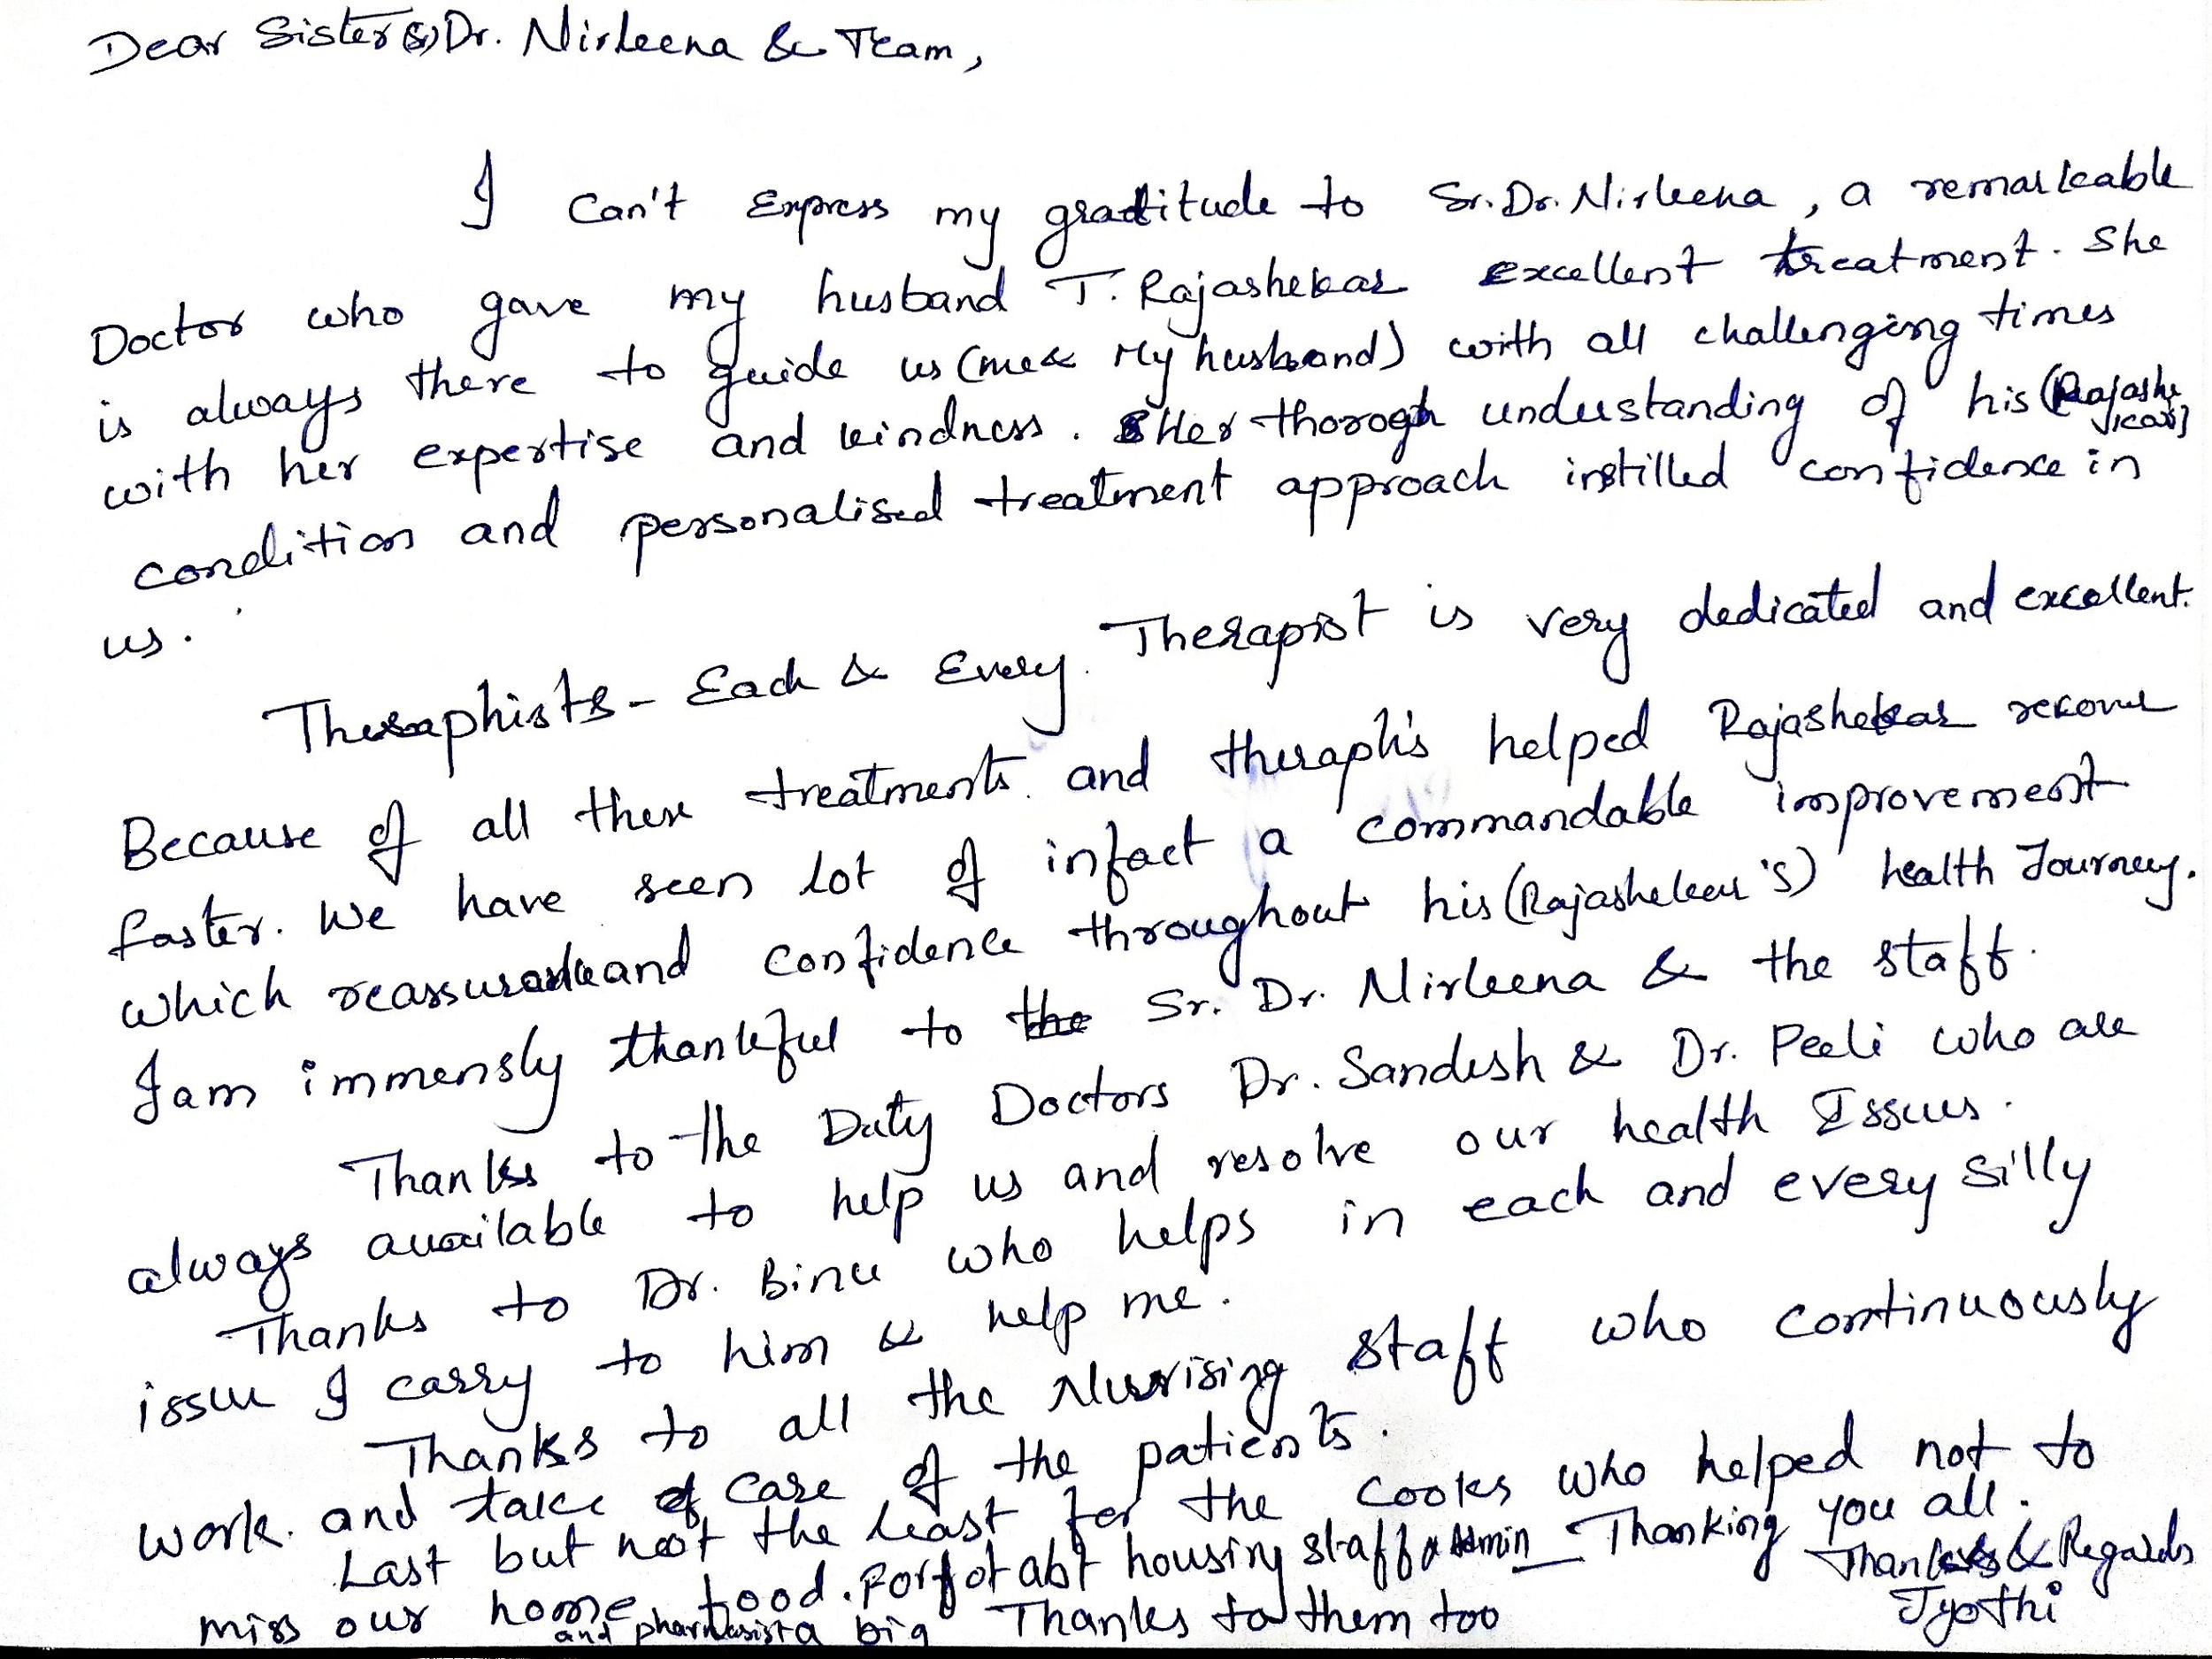 Dear Sister(s) Dr. Nirleena & Team,
I can't Express my gratitude to Sr. Dr. Nirleena, a remarkable
Doctor who gave my husband T. Rajashekar excellent treatment. She
is always there to guide us (me & My husband) with all challenging times
with her expertise and kindness. Her thorogh understanding of his (Rajashekar)
condition and personalised treatment approach instilled confidence in
us.
Theraphists - Each & Every Therapist is very dedicated and excellent.
Because of all these treatments and theraphis helped Rajashekar recover
faster. We have seen lot of infact a commandable improvement
which reassurance and confidence throughout his (Rajashekar's) health Journey.
I am immensly thankful to the Sr. Dr. Nirleena & the staff.
Thanks to the Duty Doctors Dr. Sandesh & Dr. Peeli who are
always available to help us and resolve our health Issues.
Thanks to Dr. Binu who helps in each and every silly
issue I carry to him & help me.
Thanks to all the Nursising staff who continuously
work and take of care of the patients.
Last but not the least for the cooks who helped not to
miss our home food. Forgot abt housing staff & Admin and pharmasist a big Thanks to them too
Thanking you all.
Thanks & Regards
Jyothi